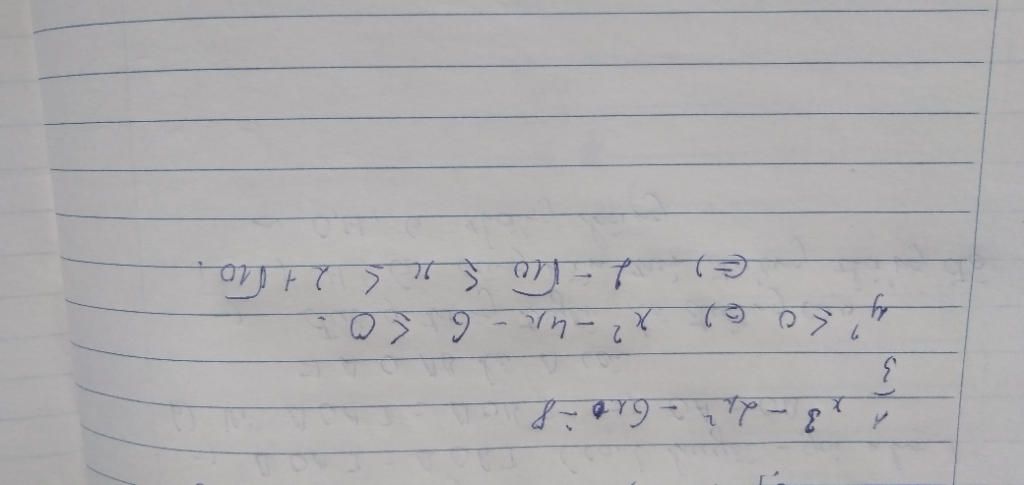 1/3 x³ - 2x² - 6x - 8
y' ≤ 0 (=) x² - 4x - 6 ≤ 0.
(=) 2 - √10 ≤ x ≤ 2 + √10.